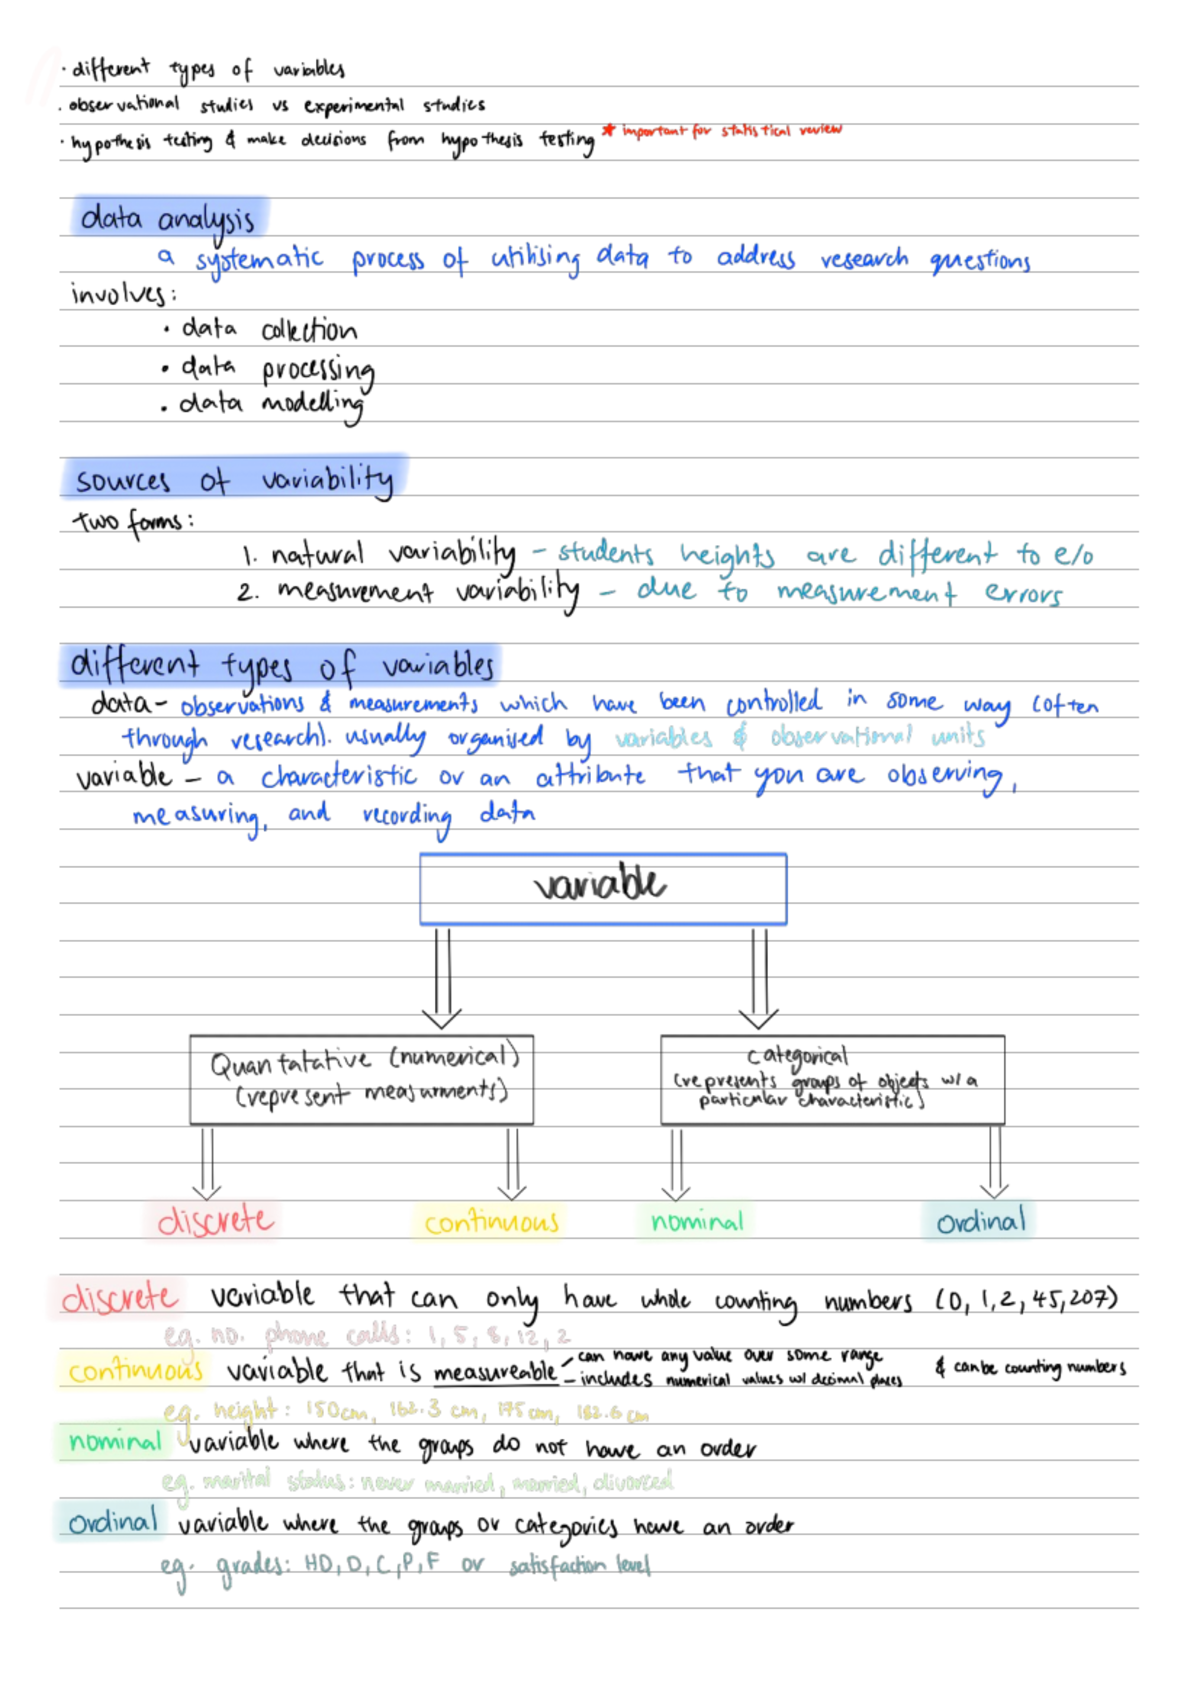 · different types of variables
· observational studies vs experimental studies
· hypothesis testing & make decisions from hypothesis testing * important for statistical review
data analysis
a systematic process of utilising data to address research questions
involves:
· data collection
· data processing
· data modelling
sources of variability
two forms:
1. natural variability - students heights are different to e/o
2. measurement variability - due to measurement errors
different types of variables
data - observations & measurements which have been controlled in some way (often
through research). usually organised by variables & observational units
variable - a characteristic or an attribute that you are observing,
measuring, and recording data
variable
Quantatative (numerical)
(represent measurments)
categorical
(represents groups of objects w/ a
particular characteristic)
discrete continuous nominal ordinal
discrete variable that can only have whole counting numbers (0, 1, 2, 45, 207)
eg. no. phone calls: 1, 5, 8, 12, 2
continuous variable that is measureable - can have any value over some range
- includes numerical values w/ decimal places & can be counting numbers
eg. height: 150cm, 162.3 cm, 175 cm, 182.6 cm
nominal variable where the groups do not have an order
eg. marital status: never married, married, divorced
ordinal variable where the groups or categories have an order
eg. grades: HD, D, C, P, F or satisfaction level